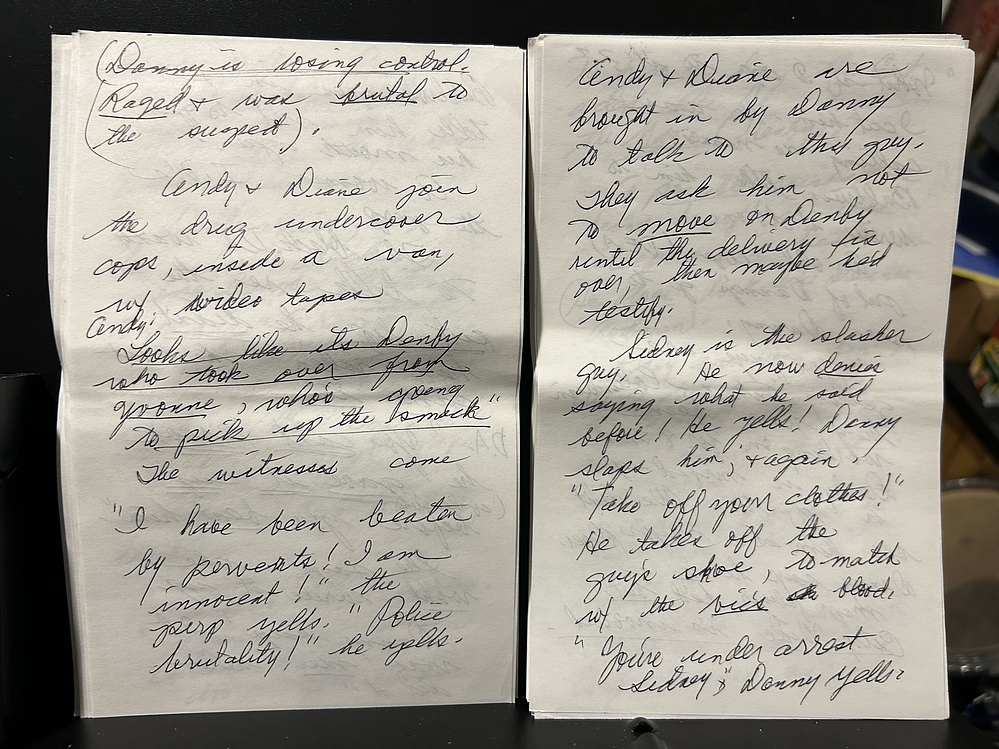 (Danny is losing control.
Raged & was brutal to
the suspect).
Andy & Diane join
the drug undercover
cops, inside a van,
w/ video tapes
Andy:
Looks like its Denby
who took over from
Yvonne, who's going
to pick up the smack"
The witnesses come
"I have been beaten
by perverts! I am
innocent!" the
perp yells. "Police
brutality!" he yells.
Andy & Diane are
brought in by Danny
to talk to this guy.
They ask him not
to move on Denby
until the delivery is
over, then maybe he'd
testify.
Sidney is the slasher
guy. He now denies
saying what he said
before! He yells! Danny
slaps him, & again.
"Take off your clothes!"
He takes off the
guy's shoe, to match
w/ the vic's blood.
"You're under arrest
Sidney", Danny yells.